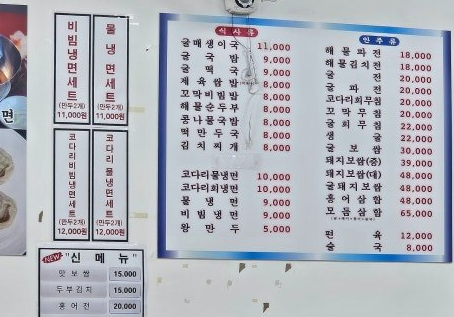 비빔냉면세트
(만두2개)
11,000원
물냉면세트
(만두2개)
11,000원
코다리비빔냉면세트
(만두2개)
12,000원
코다리물냉면세트
(만두2개)
12,000원
NEW "신메뉴"
맛보쌈 15,000
두부김치 15,000
홍어전 20,000
식사류
굴매생이국 11,000
굴국밥 9,000
굴떡국 9,000
제육쌈밥 8,000
꼬막비빔밥 8,000
해물순두부 8,000
콩나물국밥 8,000
떡만두국 8,000
김치찌개 8,000
코다리물냉면 10,000
코다리회냉면 10,000
물냉면 9,000
비빔냉면 9,000
왕만두 5,000
안주류
해물파전 18,000
해물김치전 18,000
굴전 20,000
굴파전 20,000
코다리회무침 20,000
꼬막무침 20,000
굴회무침 22,000
생굴 22,000
굴보쌈 30,000
돼지보쌈(중) 39,000
돼지보쌈(대) 48,000
굴돼지보쌈 48,000
홍어삼합 48,000
모듬삼합 65,000
편육 12,000
술국 8,000
면